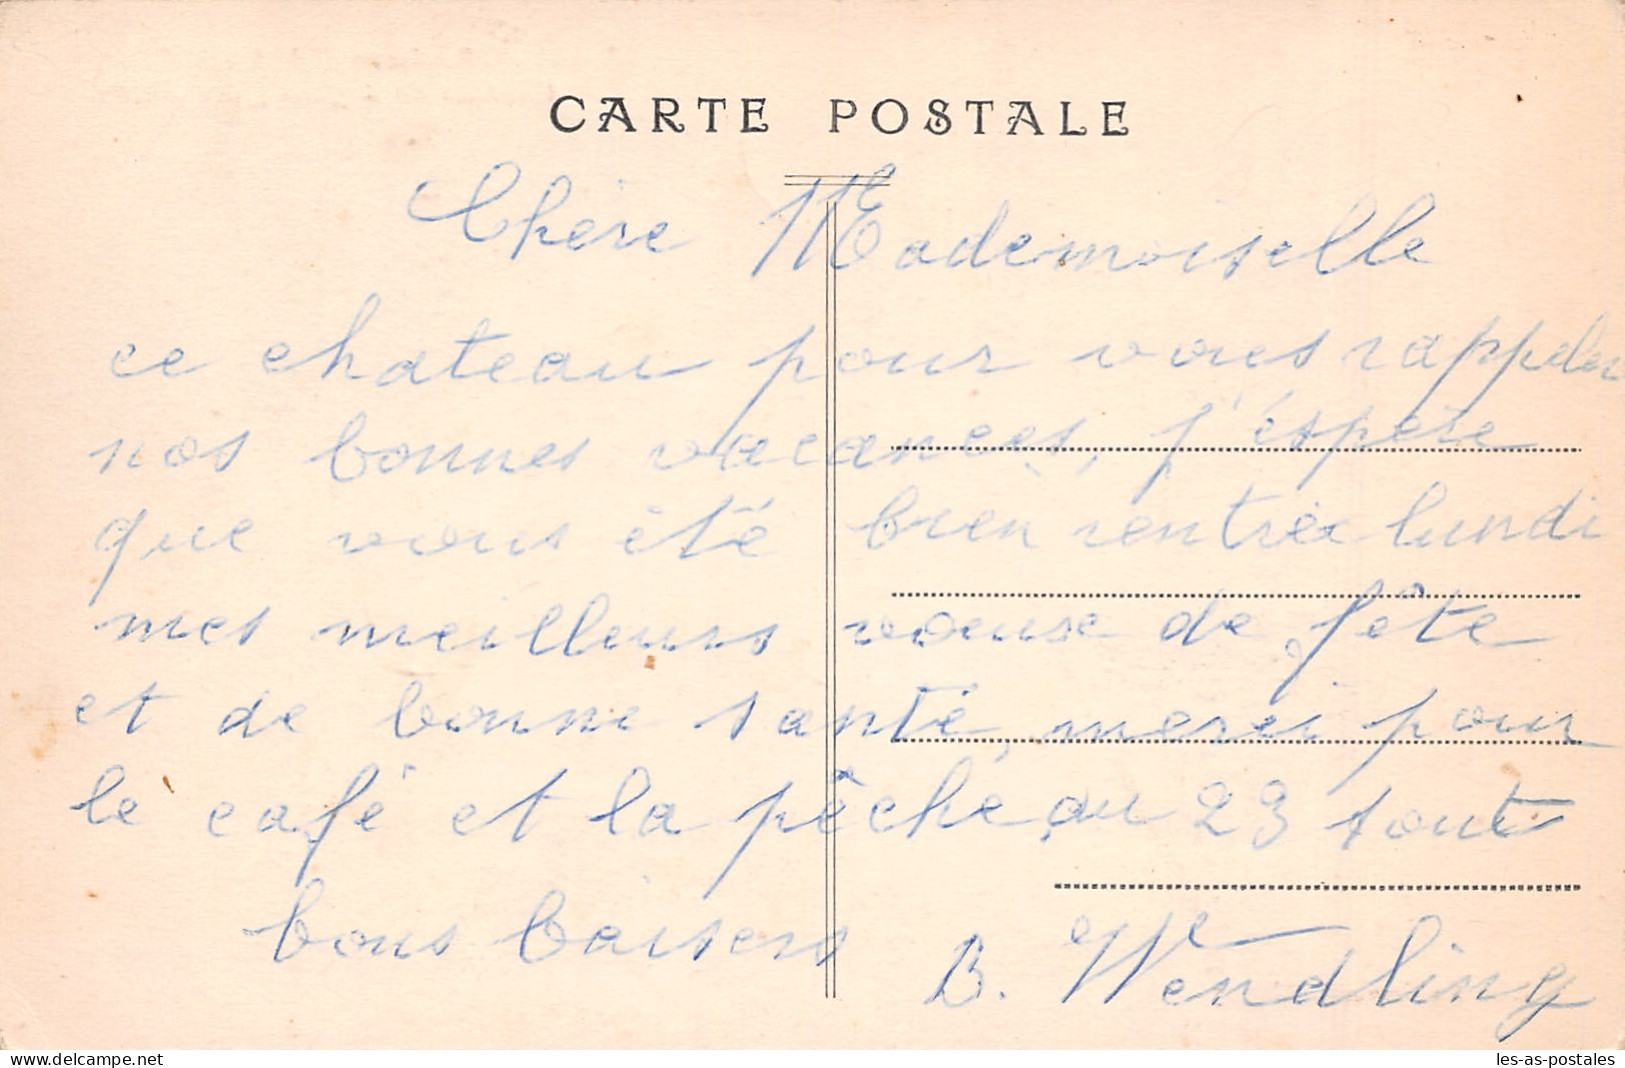 CARTE POSTALE
Chère Mademoiselle
ce chateau pour vous rappeler
nos bonnes vacances, j'éspère
que vous été bien rentrée lundi
mes meilleurs voeuse de fête
et de bonne santé, merci pour
le café et la pêche au 23 tout
bons baisers B. Wendling
delcampe.net
les-as-postales